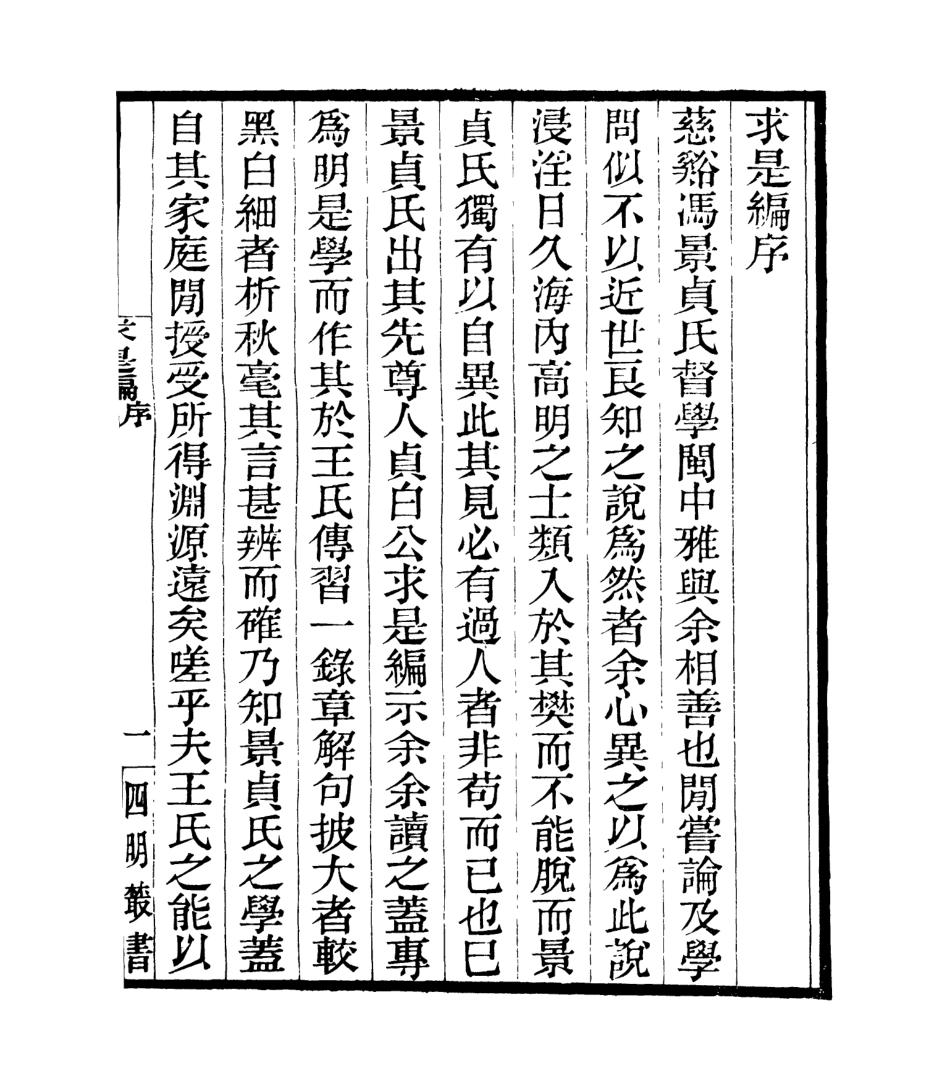 求是編序
慈谿馮景貞氏督學閩中雅與余相善也閒嘗論及學
問似不以近世良知之說爲然者余心異之以爲此說
浸淫日久海內高明之士類入於其樊而不能脫而景
貞氏獨有以自異此其見必有過人者非苟而已也巳
景貞氏出其先尊人貞白公求是編示余余讀之蓋專
爲明是學而作其於王氏傳習一錄章解句披大者較
黑白細者析秋毫其言甚辨而確乃知景貞氏之學蓋
自其家庭閒授受所得淵源遠矣嗟乎夫王氏之能以
求是編序
一
四明叢書